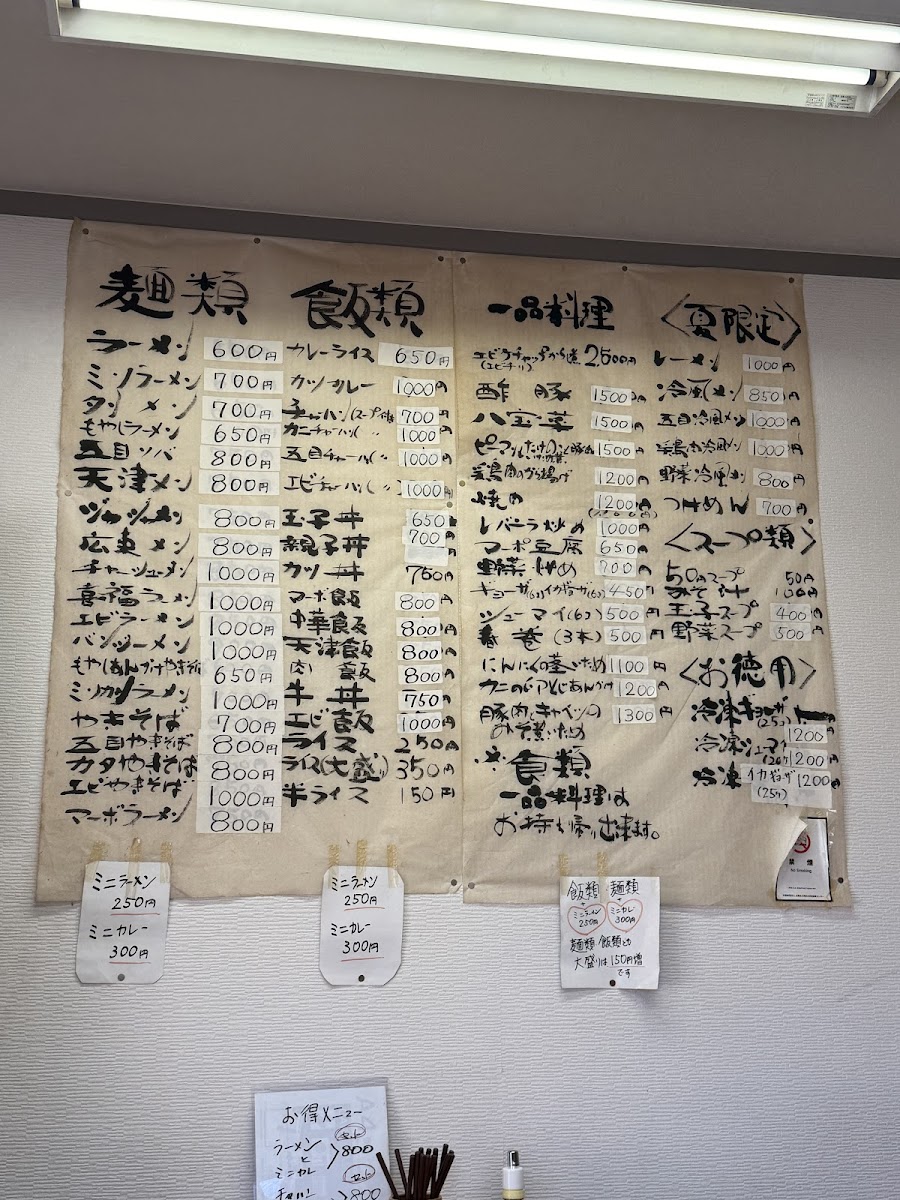 麺類
ラーメン 600円
ミソラーメン 700円
タンメン 700円
もやしラーメン 650円
五目ソバ 800円
天津メン 800円
ジャージャーメン 800円
広東メン 800円
チャーシューメン 1000円
喜福ラーメン 1000円
エビラーメン 1000円
パンツーメン 1000円
もやしあんかけやきそば 650円
ミソカツラーメン 1000円
やきそば 700円
五目やきそば 800円
カタやきそば 800円
エビやきそば 1000円
マーボラーメン 800円
飯類
カレーライス 650円
カツカレー 1000円
チャーハン(スープ付) 700円
カニチャーハン( 〃 1000円
五目チャーハン( 〃 1000円
エビチャーハン( 〃 ) 1000円
玉子丼 650
親子丼 700円
カツ丼 750円
マーボ飯 800円
中華飯 800円
天津飯 800円
肉飯 800円
牛丼 750
エビ飯 1000円
ライス 250円
ライス(大盛) 350円
半ライス 150円
一品料理
エビのケチャップから煮 2500円
(エビチリ)
酢豚 1500円
八宝菜 1500円
ピーマンたけのこと豚肉 1500円
若鳥肉のから揚げ 1200円
焼肉 1200円
レバニラ炒め 1000円
マーボ豆腐 650円
野菜炒め 700円
ギョーザ(6コ)イカギョーザ(6コ) 450円
シューマイ(6コ) 500円
春巻(3本) 500円
にんにくの茎いため 1100円
カニの 1200円
豚肉、キャベツの 1300円
みそ炒いため
※食類
一品料理は
お持ち帰り出来ます。
<夏限定>
レーメン 1000円
冷風メン 850円
五目冷風メン 1000円
若鳥冷風メン 1000円
野菜冷風メン 800円
つけめん 700円
<スープ類>
50円スープ 50円
みそ汁 100円
玉子スープ 400円
野菜スープ 500円
<お徳用>
冷凍ギョーザ 1200円
(25コ)
冷凍シューマイ 1200円
冷凍イカギョーザ 1200円
(25ケ)
禁煙
No Smoking
ミニラーメン
250円
ミニカレー
300円
ミニラーメン
250円
ミニカレー
300円
飯類 麺類
+ +
ミニラーメン 250円 ミニカレー 300円
麺類 飯類とも
大盛りは150円増
です
お得メニュー
ラーメン
と
ミニカレー
セット
800
チャーハン
セット
800